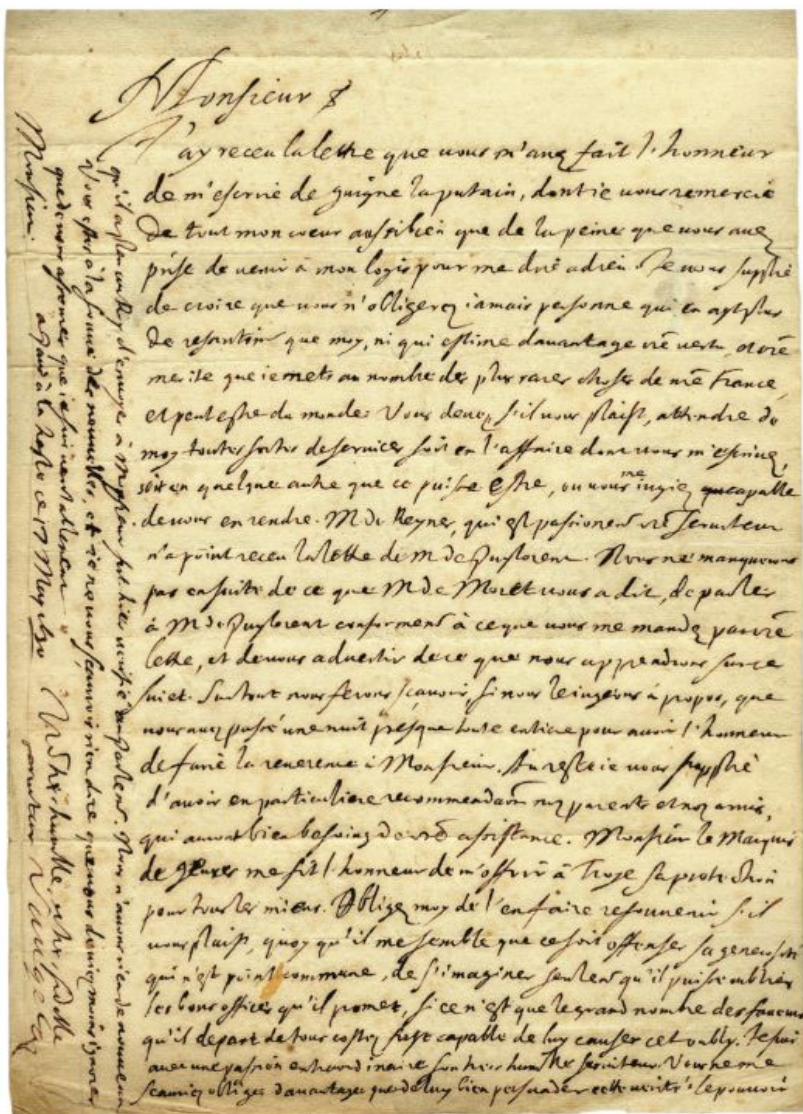 Monsieur
J'ay receu la lettre que vous m'avez fait l'honneur
de m'escrire de guigne la putain, dont ie vous remercie
de tout mon coeur aussi bien que de la peine que vous avez
prise de venir à mon logis pour me dire adieu. Je vous supplie
de croire que vous n'obligerez iamais personne qui en ayt plus
de resentim que moy, ni qui estime davantage vre vertu, et vre
merite que ie mets au nombre des plus rares choses de nre France,
et peut estre du monde. Vous devez s'il vous plaist, attendre de
moy toutes sortes de services soit en l'affaire dont vous m'escrivez,
soit en quelque autre que ce puisse estre, ou vous me iugiez capable
de vous en rendre. Mr de Reyner, qui est passionem vre serviteur
n'a point receu la lettre de M de Puylorent. Nous ne manquerons
pas ensuite de ce que M de Moret vous a dit, de parler
à M de Puylorent conformem à ce que vous me mandez par vre
lettre, et de vous advertir de ce que nous apprendrons sur ce
suiet. Surtout nous ferons sçavoir, si nous le iugeons à propos, que
vous avez passé une nuit presque toute entiere pour avoir l'honneur
de faire la reverence à Monsieur. Au reste ie vous supplie
d'avoir en particuliere recommendaon mes parents et mes amis,
qui auront bien besoing de vre assistance. Monsieur le Marquis
de me fit l'honneur de m'offrir à Troye sa protection
pour tous les miens. Obligez moy de l'en faire resouvenir s'il
vous plaist, quoy qu'il me semble que ce soit offenser sa generosité
qui n'est point commune, de s'imaginer seulem qu'il puisse oublier
les bons offices qu'il promet, si ce n'est que le grand nombre des faveurs
qu'il depart de tous costez fust capable de luy causer cet oubly. Je suis
avec une passion extraordinaire son tres humble serviteur. Vous ne me
sçauriez obliger davantage que de luy bien persuader cette verité. le pouvoir
qu'il a du Roy d'envoyer à Monsieur fut hier verifié au Parlem. Nous n'avons rien de nouveau
Vous estes à la source des nouvelles, et ie ne vous sçaurois rien dire que vous deviez moins ignorer
que de vous asseurer que ie suis veritablement
Monsieur.
à Paris à la haste ce 17 May 1630
Vre tres humble, et tres fidelle
serviteur Vaugelas